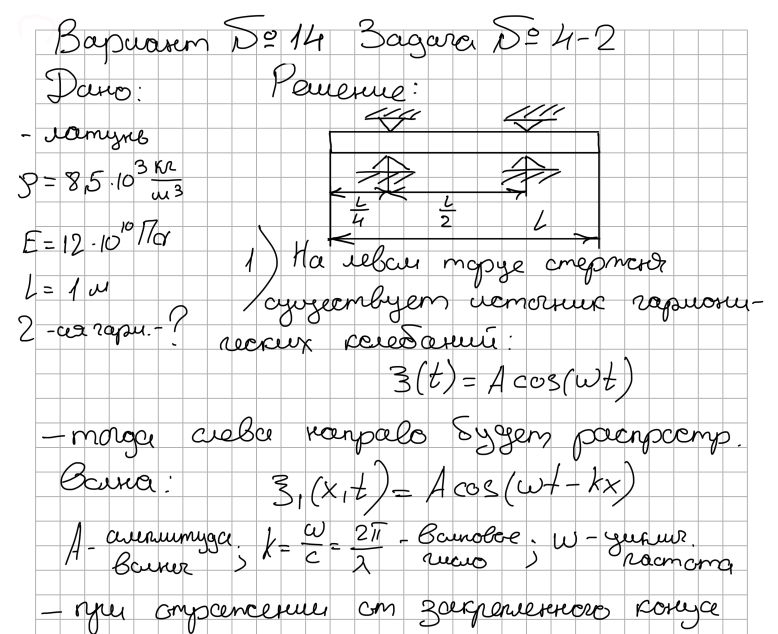 Вариант № 14 Задача № 4-2
Дано: Решение:
- латунь
ρ = 8,5·10³ кг/м³
E = 12·10¹⁰ Па
L = 1 м
2-ая гарм. - ?
L/4 L/2 L
1) На левом торце стержня
существует источник гармони-
ческих колебаний:
ξ(t) = A cos(ωt)
- тогда слева направо будет распростр.
волна: ξ₁(x,t) = A cos(ωt - kx)
A - амплитуда волны; k = ω/c = 2π/λ - волновое число; ω - циклич. частота
- при отражении от закрепленного конца